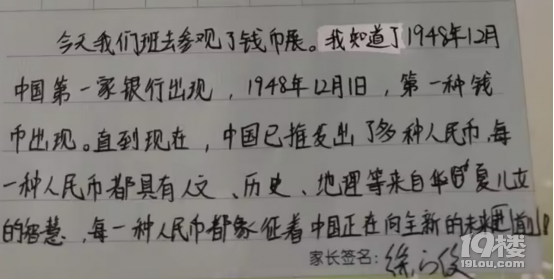 今天我们班去参观了钱币展。我知道了1948年12月
中国第一家银行出现，1948年12月1日，第一种钱
币出现。直到现在，中国已推发出了多种人民币，每
一种人民币都具有人文、历史、地理等来自华夏儿女
的智慧，每一种人民币都象征着中国正在向全新的未来
家长签名：
19楼
19lou.com